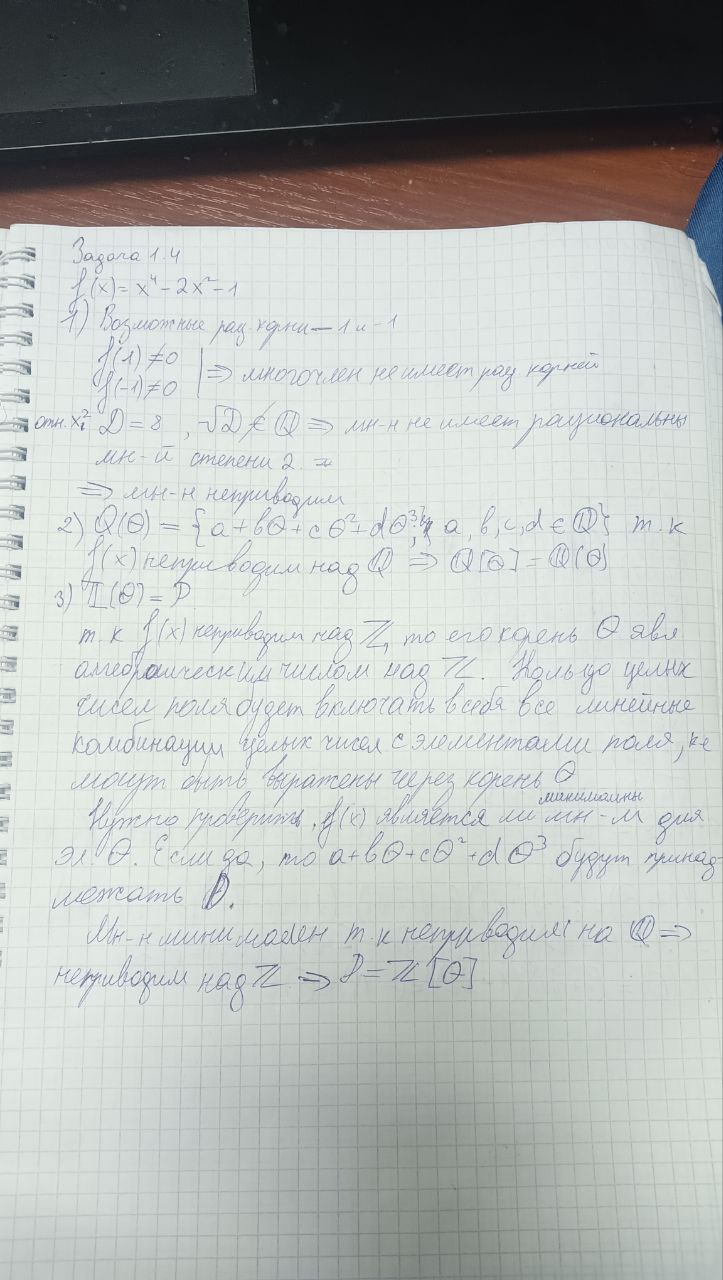 Задача 1.4
f(x) = x⁴ - 2x² - 1
1) Возможные рац. корни — 1 и -1
f(1) ≠ 0
f(-1) ≠ 0 | ⇒ многочлен не имеет рац корней
отн. x² D = 8 , √D ∉ Q ⇒ мн-н не имеет рациональны
мн-й степени 2. ⇒
⇒ мн-н неприводим
2) Q(θ) = {a + bθ + cθ² + dθ³; a, b, c, d ∈ Q} т.к
f(x) неприводим над Q ⇒ Q[θ] = Q(θ)
3)
т.к f(x) неприводим над Z, то его корень θ явл
алгебраическим числом над Z. Кольцо целых
чисел поля будет включать в себя все линейные
комбинации целых чисел с элементами поля,
могут быть выражены через корень θ
Нужно проверить, f(x) является ли минимальны мн-м для
эл θ. Если да, то a + bθ + cθ² + dθ³ будут принад-
лежать D.
Мн-н минимален т.к неприводим на Q ⇒
неприводим над Z ⇒ D = Z[θ]